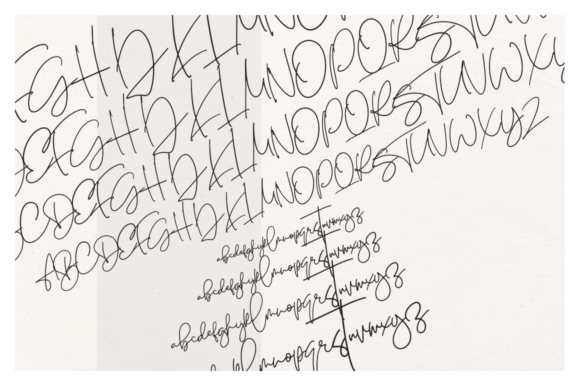 EFGHIJKL MNOPQRS
CDEFGHIJKL MNOPQRSTUVWXY
BCDEFGHIJKL MNOPQRSTUVWXY
ABCDEFGHIJKL MNOPQRSTUVWXYZ
abcdefghijkl mnopqrstuvwxyz
abcdefghijkl mnopqrstuvwxyz
abcdefghijkl mnopqrstuvwxyz
mnopqrstuvwxyz